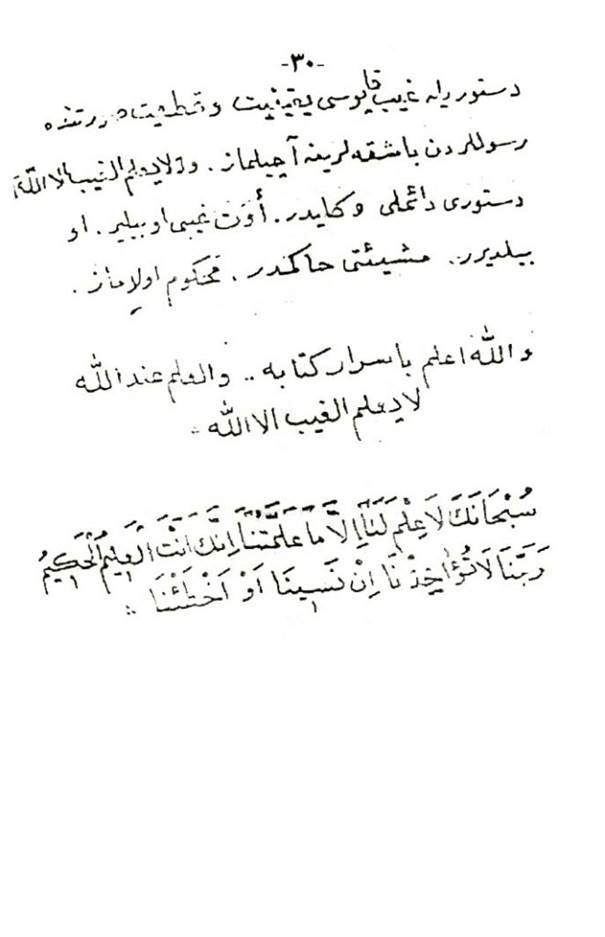 -٣٠-
دستوريله غيب قاپوسى يقينيت وقطعيت صورتنده
رسوللردن باشقه لرينه آچيلماز. و ﴿لا يعلم الغيب الا الله﴾
دستورى دائملى وكليدر. أوت غيبى او بيلير. او
بيلديرر.. مشيئتى حاكمدر. محكوم اولاماز.
والله اعلم باسرار كتابه .. والعلم عند الله
لا يعلم الغيب الا الله
سُبْحَانَكَ لَا عِلْمَ لَنَا اِلَّا مَا عَلَّمْتَنَا اِنَّكَ اَنْتَ الْعَلِيمُ الْحَكِيمُ
رَبَّنَا لَا تُؤَاخِذْنَا اِنْ نَسِينَا اَوْ اَخْطَئْنَا